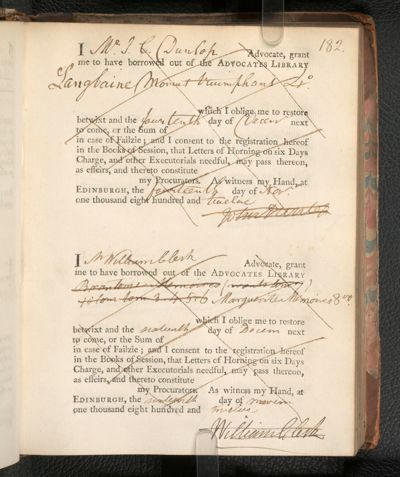 182.
I Mr J. C. Dunlop Advocate, grant
me to have borrowed out of the ADVOCATES LIBRARY
Langbaine Momus triumphans 4to
which I oblige me to restore
betwixt and the fourteenth day of Decem next
to come, or the Sum of
in case of Failzie; and I consent to the registration hereof
in the Books of Session, that Letters of Horning on six Days
Charge, and other Executorials needful, may pass thereon,
as effeirs, and thereto constitute
my Procurators. As witness my Hand, at
EDINBURGH, the fourteenth day of Nov.
one thousand eight hundred and twelve
John Dunlop
I Mr William Clerk Advocate, grant
me to have borrowed out of the ADVOCATES LIBRARY
Memoires
3. 4. 5. 6 Marguerite Memoires 8vo
which I oblige me to restore
betwixt and the sixteenth day of Decem next
to come, or the Sum of
in case of Failzie; and I consent to the registration hereof
in the Books of Session, that Letters of Horning on six Days
Charge, and other Executorials needful, may pass thereon,
as effeirs, and thereto constitute
my Procurators. As witness my Hand, at
EDINBURGH, the sixteenth day of Novem
one thousand eight hundred and twelve
William Clerk